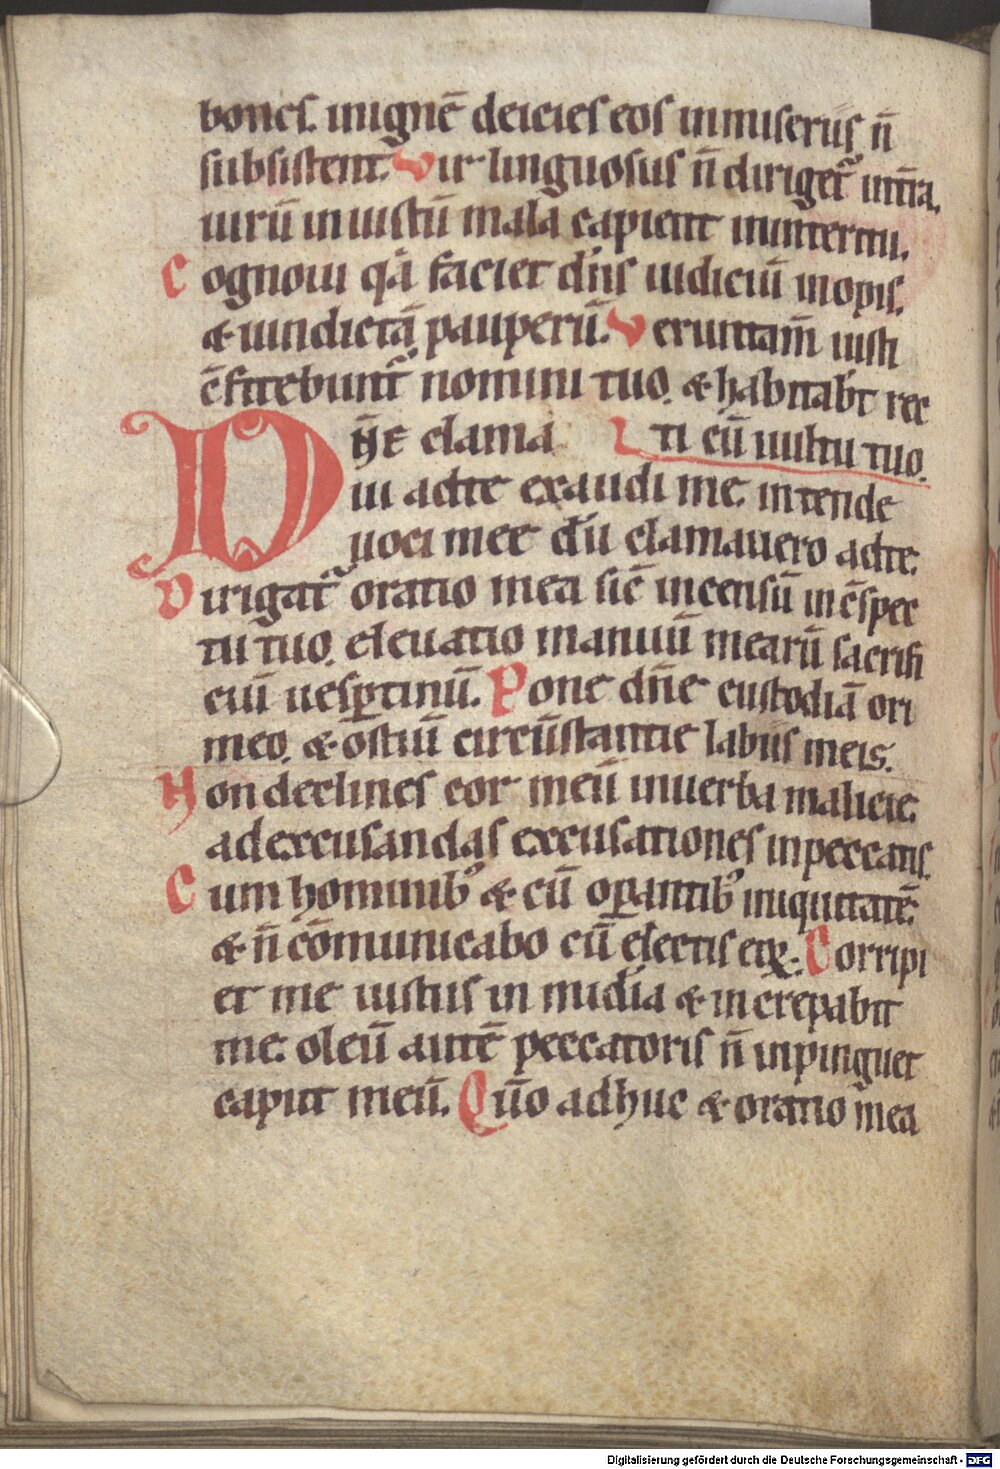 bones. in ignē deicies eos in miseriis n̄
subsistent. Vir linguosus n̄ diriget᷑ in tr̄a.
uirū iniustū mala capient in interitu.
Cognoui q̄a faciet dn̄s iudiciū inopis.
& uindictā pauperū. Veruntam̄ iusti
c̄fitebunt᷑ nomini tuo. & habitab̄t rec
ti cū uultu tuo.
Dn̄e clama
ui ad te exaudi me. intende
uoci mee dū clamauero ad te.
Dirigat᷑ oratio mea sic̄ incensū in c̄spec
tu tuo. eleuatio manuū mearū sacrifi
ciū uesp̱tinū. Pone dn̄e custodiā ori
meo. & ostiū circūstantie labiis meis.
Non declines cor meū in uerba malicie.
ad excusandas excusationes in peccatis.
Cum hominib᷒ & cū op̱antib᷒ iniquitatē.
& n̄ cōmunicabo cū electis eoꝝ. Corripi
et me iustus in mīdia & increpabit
me. oleū autē peccatoris n̄ inpinguet
caput meū. Qūo adhuc & oratio mea
Digitalisierung gefördert durch die Deutsche Forschungsgemeinschaft - DFG